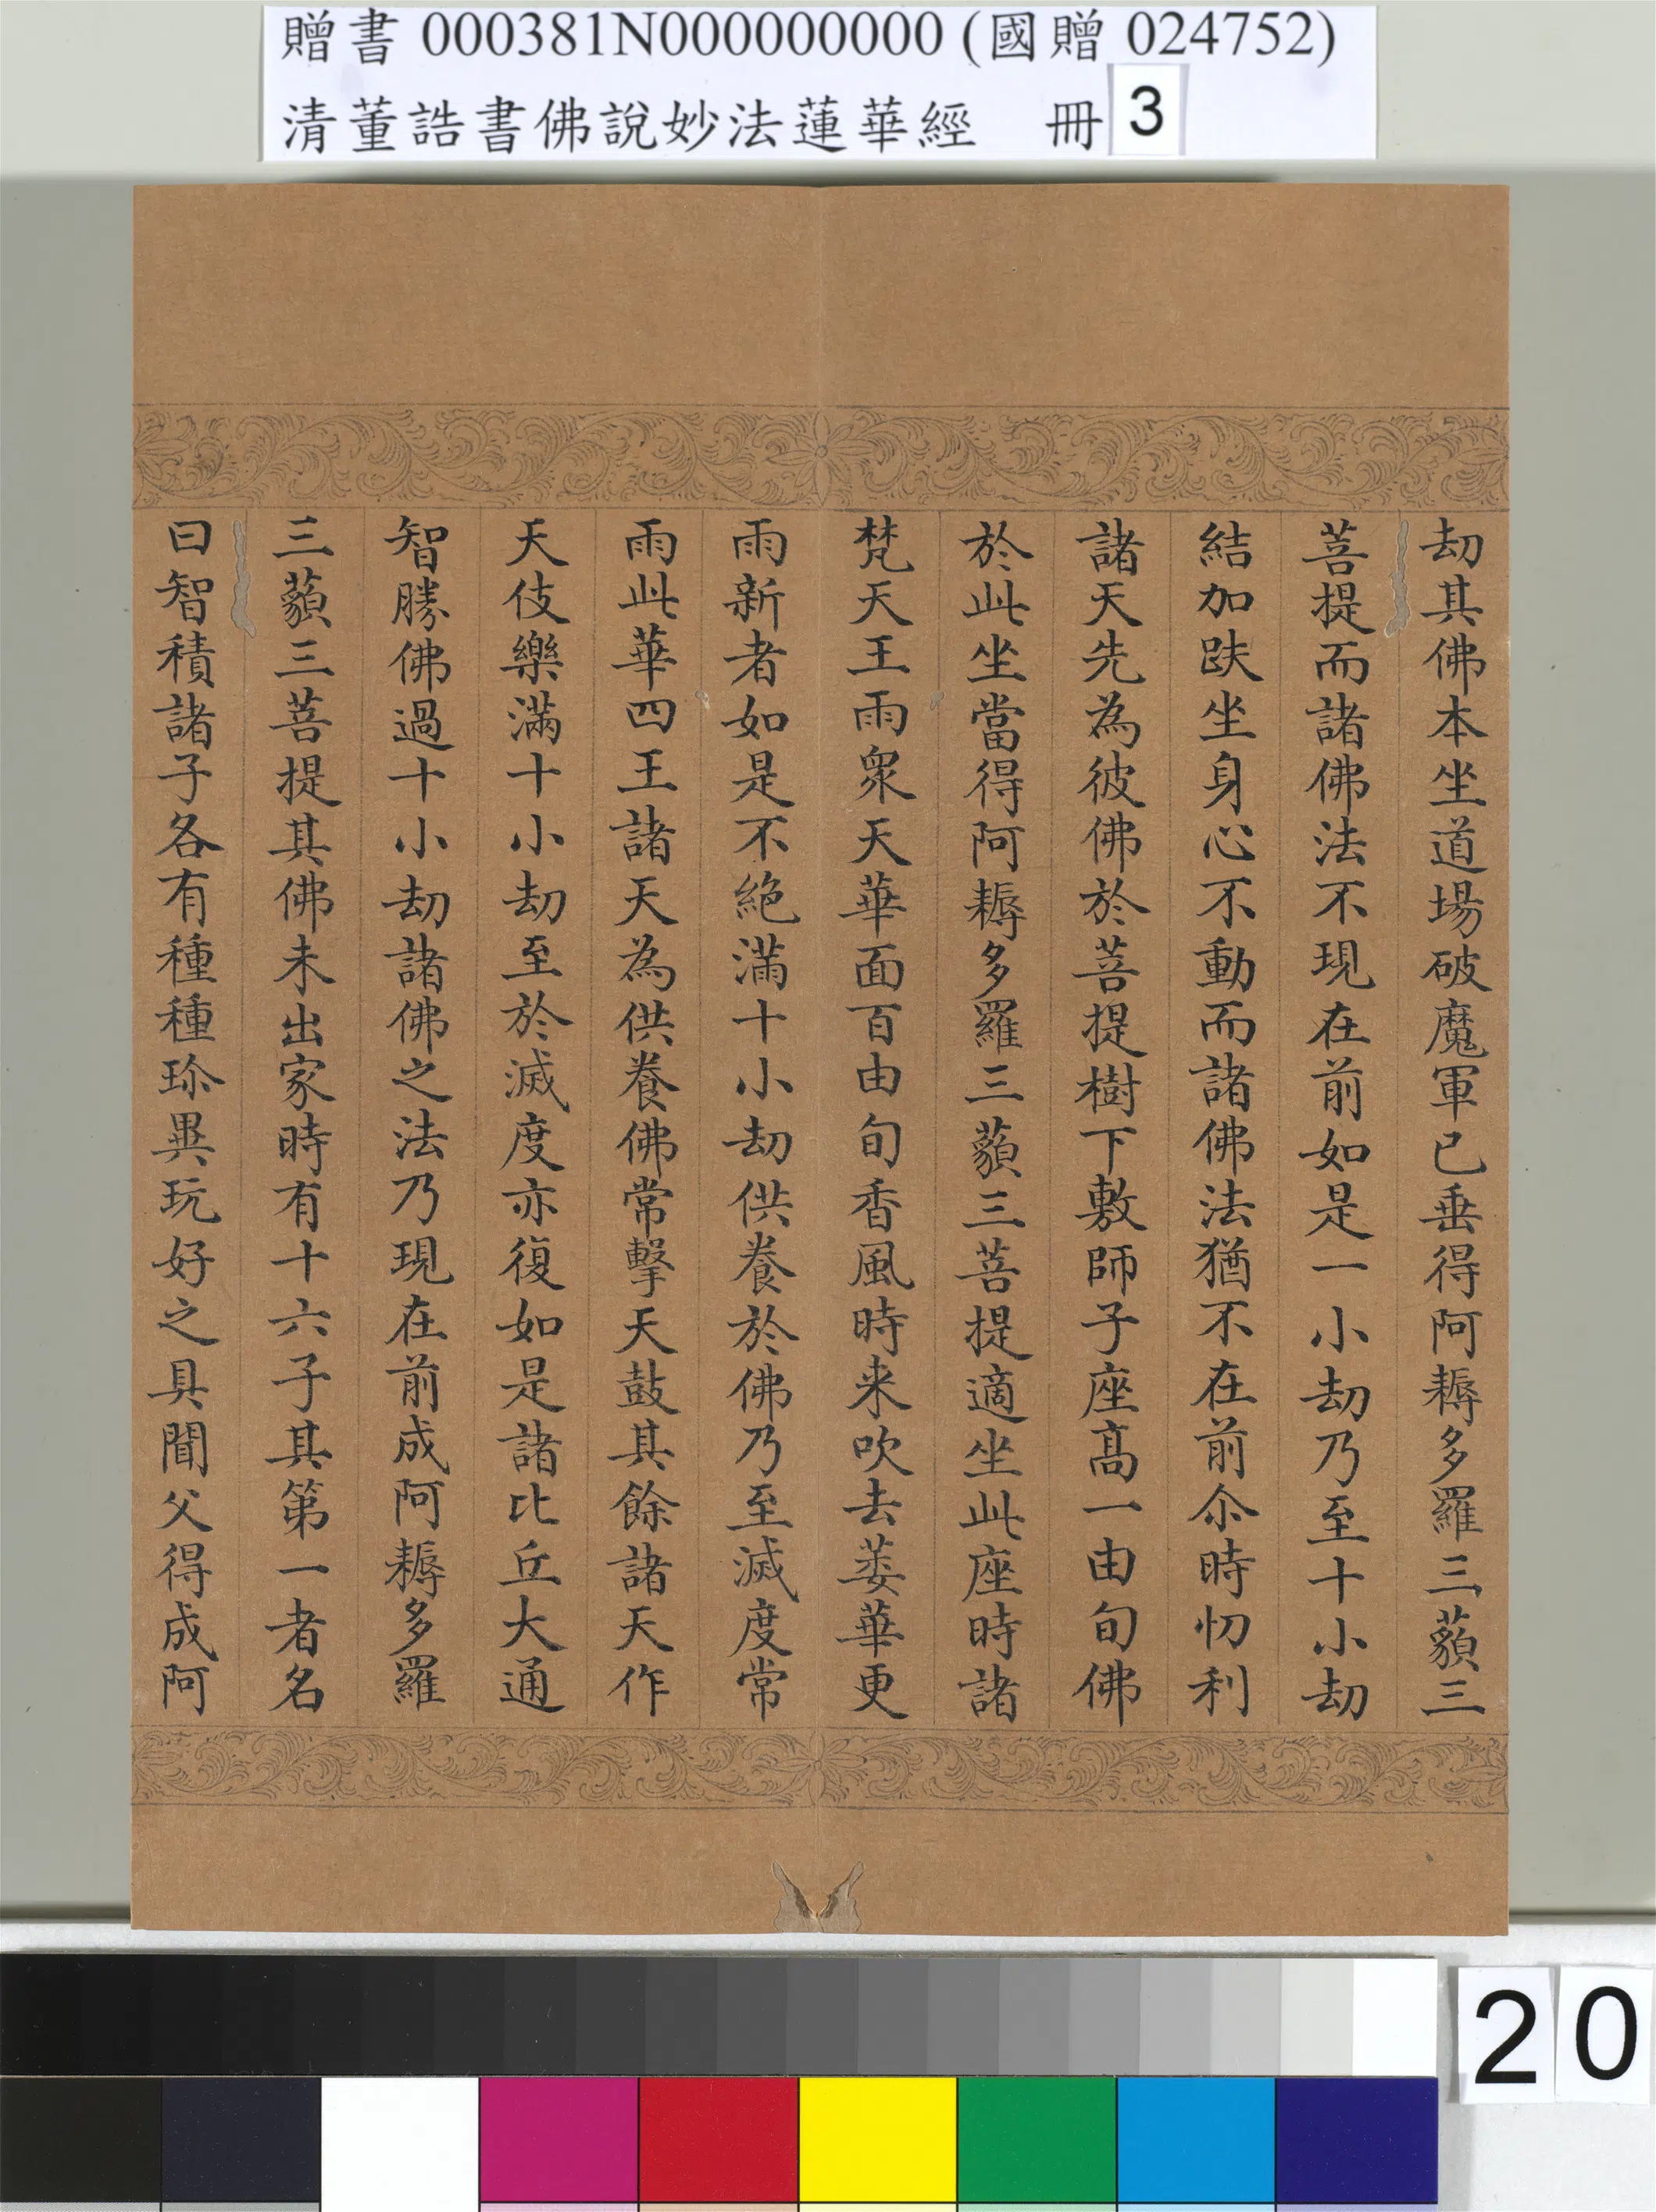 贈書 000381N000000000 (國贈 024752)
清董誥書佛說妙法蓮華經 冊 3
劫其佛本坐道場破魔軍已垂得阿耨多羅三藐三
菩提而諸佛法不現在前如是一小劫乃至十小劫
結加趺坐身心不動而諸佛法猶不在前尒時忉利
諸天先為彼佛於菩提樹下敷師子座高一由旬佛
於此坐當得阿耨多羅三藐三菩提適坐此座時諸
梵天王雨衆天華面百由旬香風時来吹去萎華更
雨新者如是不絕滿十小劫供養於佛乃至滅度常
雨此華四王諸天為供養佛常擊天鼓其餘諸天作
天伎樂滿十小劫至於滅度亦復如是諸比丘大通
智勝佛過十小劫諸佛之法乃現在前成阿耨多羅
三藐三菩提其佛未出家時有十六子其第一者名
曰智積諸子各有種種珎異玩好之具聞父得成阿
20